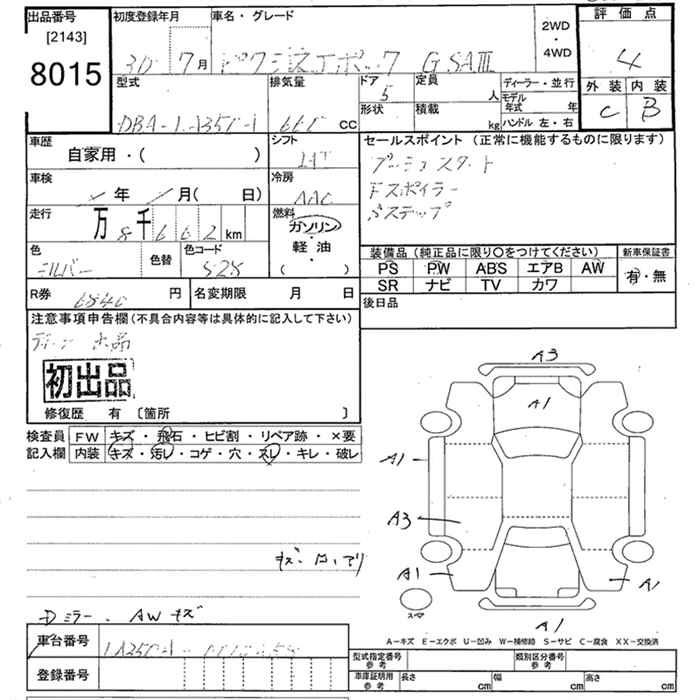 出品番号
[2143]
8015
初度登録年月
30 7月
車名・グレード
2WD
・
4WD
評価点
4
外装 内装
C B
型式
排気量
CC
ドア 5
形状
定員 人
積載 kg
ディーラー・並行
モデル年式 年
ハンドル 左・右
車歴
自家用・( )
シフト
セールスポイント (正常に機能するものに限ります)
プッシュスタート
Fスポイラー
Sステップ
車検
年 月( 日)
冷房
AAC
走行
万 8千662km
燃料
ガソリン・
軽・油
( )
色
シルバー
色替
色コード
S28
装備品 (純正品に限り○をつけてください)
新車保証書
PS PW ABS エアB AW
SR ナビ TV カワ
有・無
R券
6840円
名変期限 月 日
後日品
注意事項申告欄(不具合内容等は具体的に記入して下さい)
初出品
修復歴 有 [箇所 ]
検査員
記入欄
FW キズ・飛石・ヒビ割・リペア跡・×要
内装 キズ・汚レ・コゲ・穴・スレ・キレ・破レ
A3
A1
A1
A3
A1
A1
A1
スペア
Dミラー、AWキズ
A－キズ E－エクボ U－凹み W－補修跡 S－サビ C－腐食 XX－交換済
車台番号
登録番号
型式指定番号
参考
類別区分番号
参考
車庫証明用
参考
長さ cm
幅 cm
高さ cm